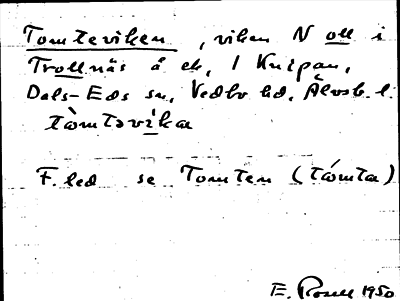 Tomteviken, viken N oll i
Trollnäs å ek, 1 Knipan,
Dals-Eds sn, Vedbo hd, Älvsb. l.
tòmtəvika
F. led se Tomten (tómta)
E. Rosell 1950